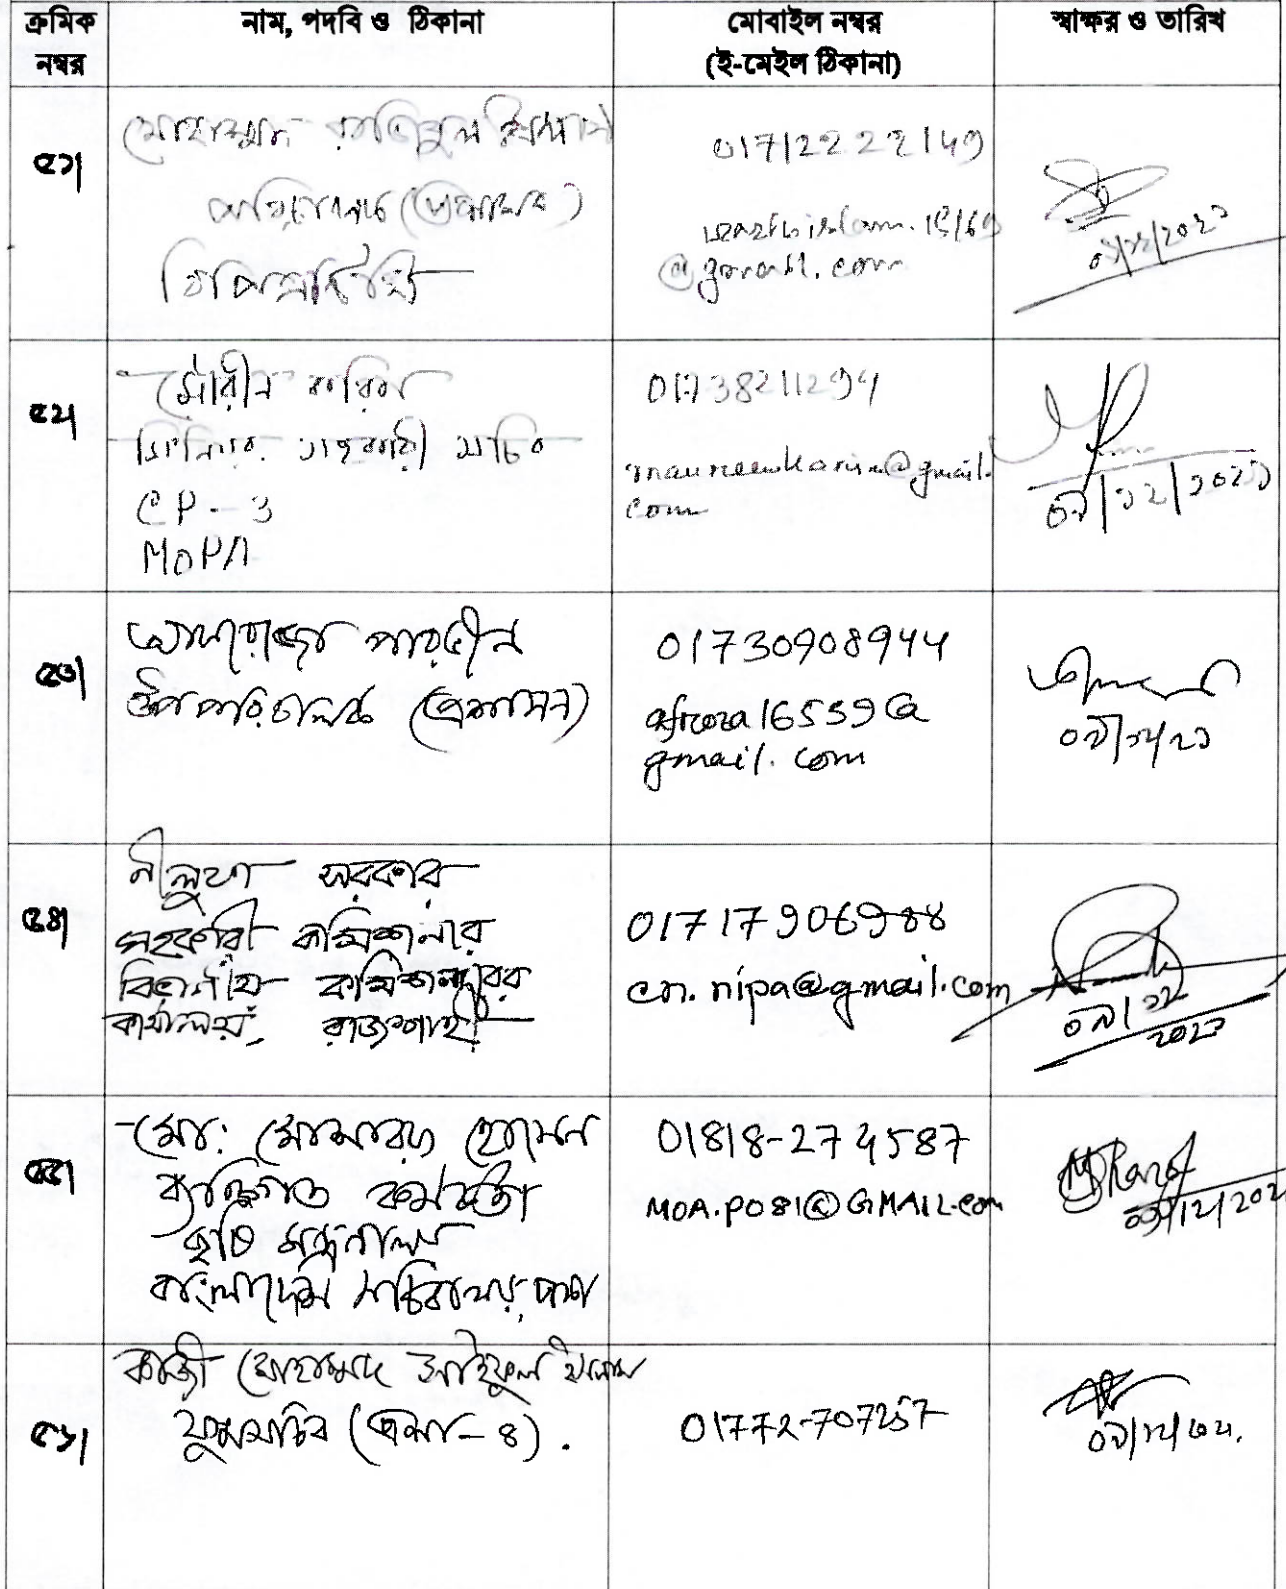 ক্রমিক নম্বর
নাম, পদবি ও ঠিকানা
মোবাইল নম্বর
(ই-মেইল ঠিকানা)
স্বাক্ষর ও তারিখ
৫১|
মোহাম্মদ ইসলাম
01712222149
@gmail.com
৫২|
মৌরীন করিম
সিনিয়র সহকারী সচিব
CP-3
MOPA
01738211294
maureenkarim@gmail.
com
০৭/১২/২০২১
৫৩|
আফরোজা পারভীন
উপপরিচালক (প্রশাসন)
01730908944
afroza16539@
gmail.com
০৭/১২/২১
৫৪|
নীলুফা সরকার
সহকারী কমিশনার
বিভাগীয় কমিশনারের
কার্যালয়, রাজশাহী
01717906988
en.nipa@gmail.com
৫৫|
মো: মোবারক হোসেন
ব্যক্তিগত কর্মকর্তা
কৃষি মন্ত্রণালয়
বাংলাদেশ সচিবালয়, ঢাকা
01818-274587
MOA.PO81@GMAIL.com
৫৬|
কাজী মোহাম্মদ সাইফুল ইসলাম
যুগ্মসচিব
01772-707257